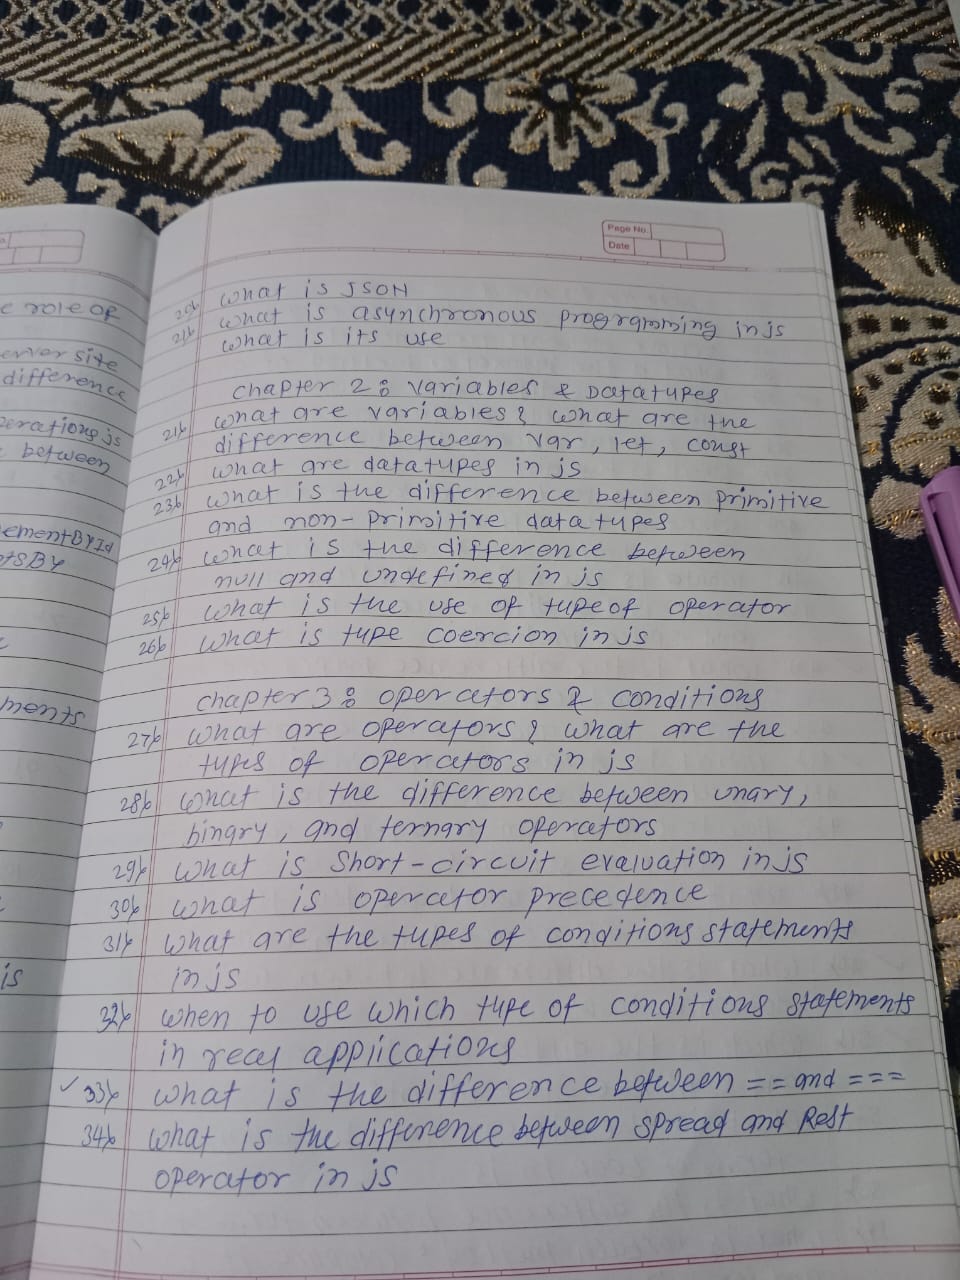 e role of
erver site
difference
perations js
between
ementById
etsBy
ments
is
Page No.
Date
20) what is JSON
21) what is asynchronous programming in js
what is its use
chapter 2: variables & Datatypes
21) what are variables? what are the
difference between var, let, const
22) what are datatypes in js
23) what is the difference between primitive
and non-primitive data types
24) what is the difference between
null and undefined in js
25) what is the use of typeof operator
26) what is type coercion in js
chapter 3: operators & conditions
27) what are operators? what are the
types of operators in js
28) what is the difference between unary,
binary, and ternary operators
29) what is short-circuit evaluation in js
30) what is operator precedence
31) what are the types of conditions statements
in js
32) when to use which type of conditions statements
in real applications
✓ 33) what is the difference between == and ===
34) what is the difference between spread and Rest
operator in js